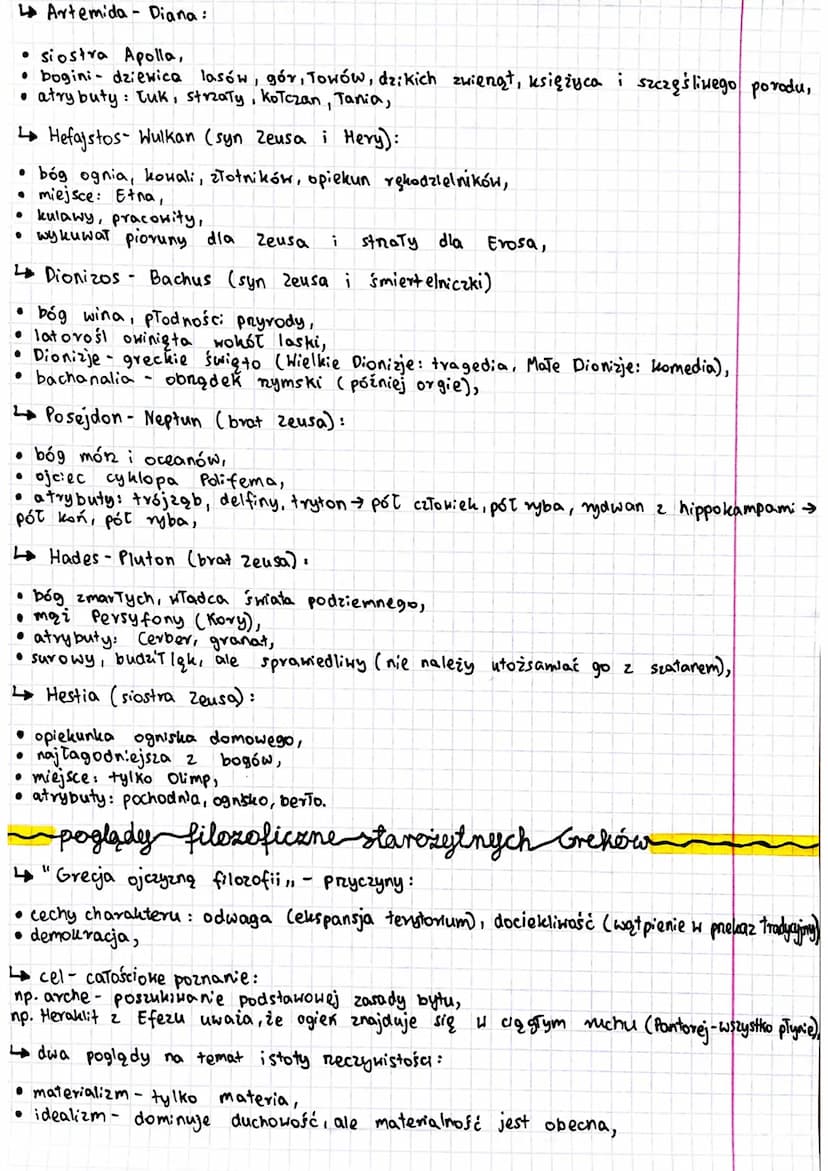 ↳ Artemida - Diana:
• siostra Apolla,
• bogini - dziewica lasów, gór, łowów, dzikich zwierząt, księżyca i szczęśliwego porodu,
• atrybuty: łuk, strzały, kołczan, łania,
↳ Hefajstos - Wulkan (syn Zeusa i Hery):
• bóg ognia, kowali, złotników, opiekun rękodzielników,
• miejsce: Etna,
• kulawy, pracowity,
• wykuwał pioruny dla Zeusa i strzały dla Erosa,
↳ Dionizos - Bachus (syn Zeusa i śmiertelniczki)
• bóg wina, płodności przyrody,
• latorośl owinięta wokół laski,
• Dionizje - greckie święto (Wielkie Dionizje: tragedia, Małe Dionizje: komedia),
• bachanalia - obrządek rzymski (później orgie),
↳ Posejdon - Neptun (brat Zeusa):
• bóg mórz i oceanów,
• ojciec cyklopa Polifema,
• atrybuty: trójząb, delfiny, tryton → pół człowiek, pół ryba, rydwan z hippokampami →
pół koń, pół ryba,
↳ Hades - Pluton (brat Zeusa):
• bóg zmarłych, władca świata podziemnego,
• mąż Persyfony (Kory),
• atrybuty: Cerber, granat,
• surowy, budził lęk, ale sprawiedliwy (nie należy utożsamiać go z szatanem),
↳ Hestia (siostra Zeusa):
• opiekunka ogniska domowego,
• najłagodniejsza z bogów,
• miejsce: tylko Olimp,
• atrybuty: pochodnia, ognisko, berło.
poglądy filozoficzne starożytnych Greków
↳ "Grecja ojczyzną filozofii" - przyczyny:
• cechy charakteru: odwaga (ekspansja terytorium), dociekliwość (wątpienie w przekaz tradycyjny)
• demokracja,
↳ cel - całościowe poznanie:
np. arche - poszukiwanie podstawowej zasady bytu,
np. Heraklit z Efezu uważa, że ogień znajduje się w ciągłym ruchu (Pantarej - wszystko płynie),
↳ dwa poglądy na temat istoty rzeczywistości:
• materializm - tylko materia,
• idealizm - dominuje duchowość, ale materialność jest obecna,